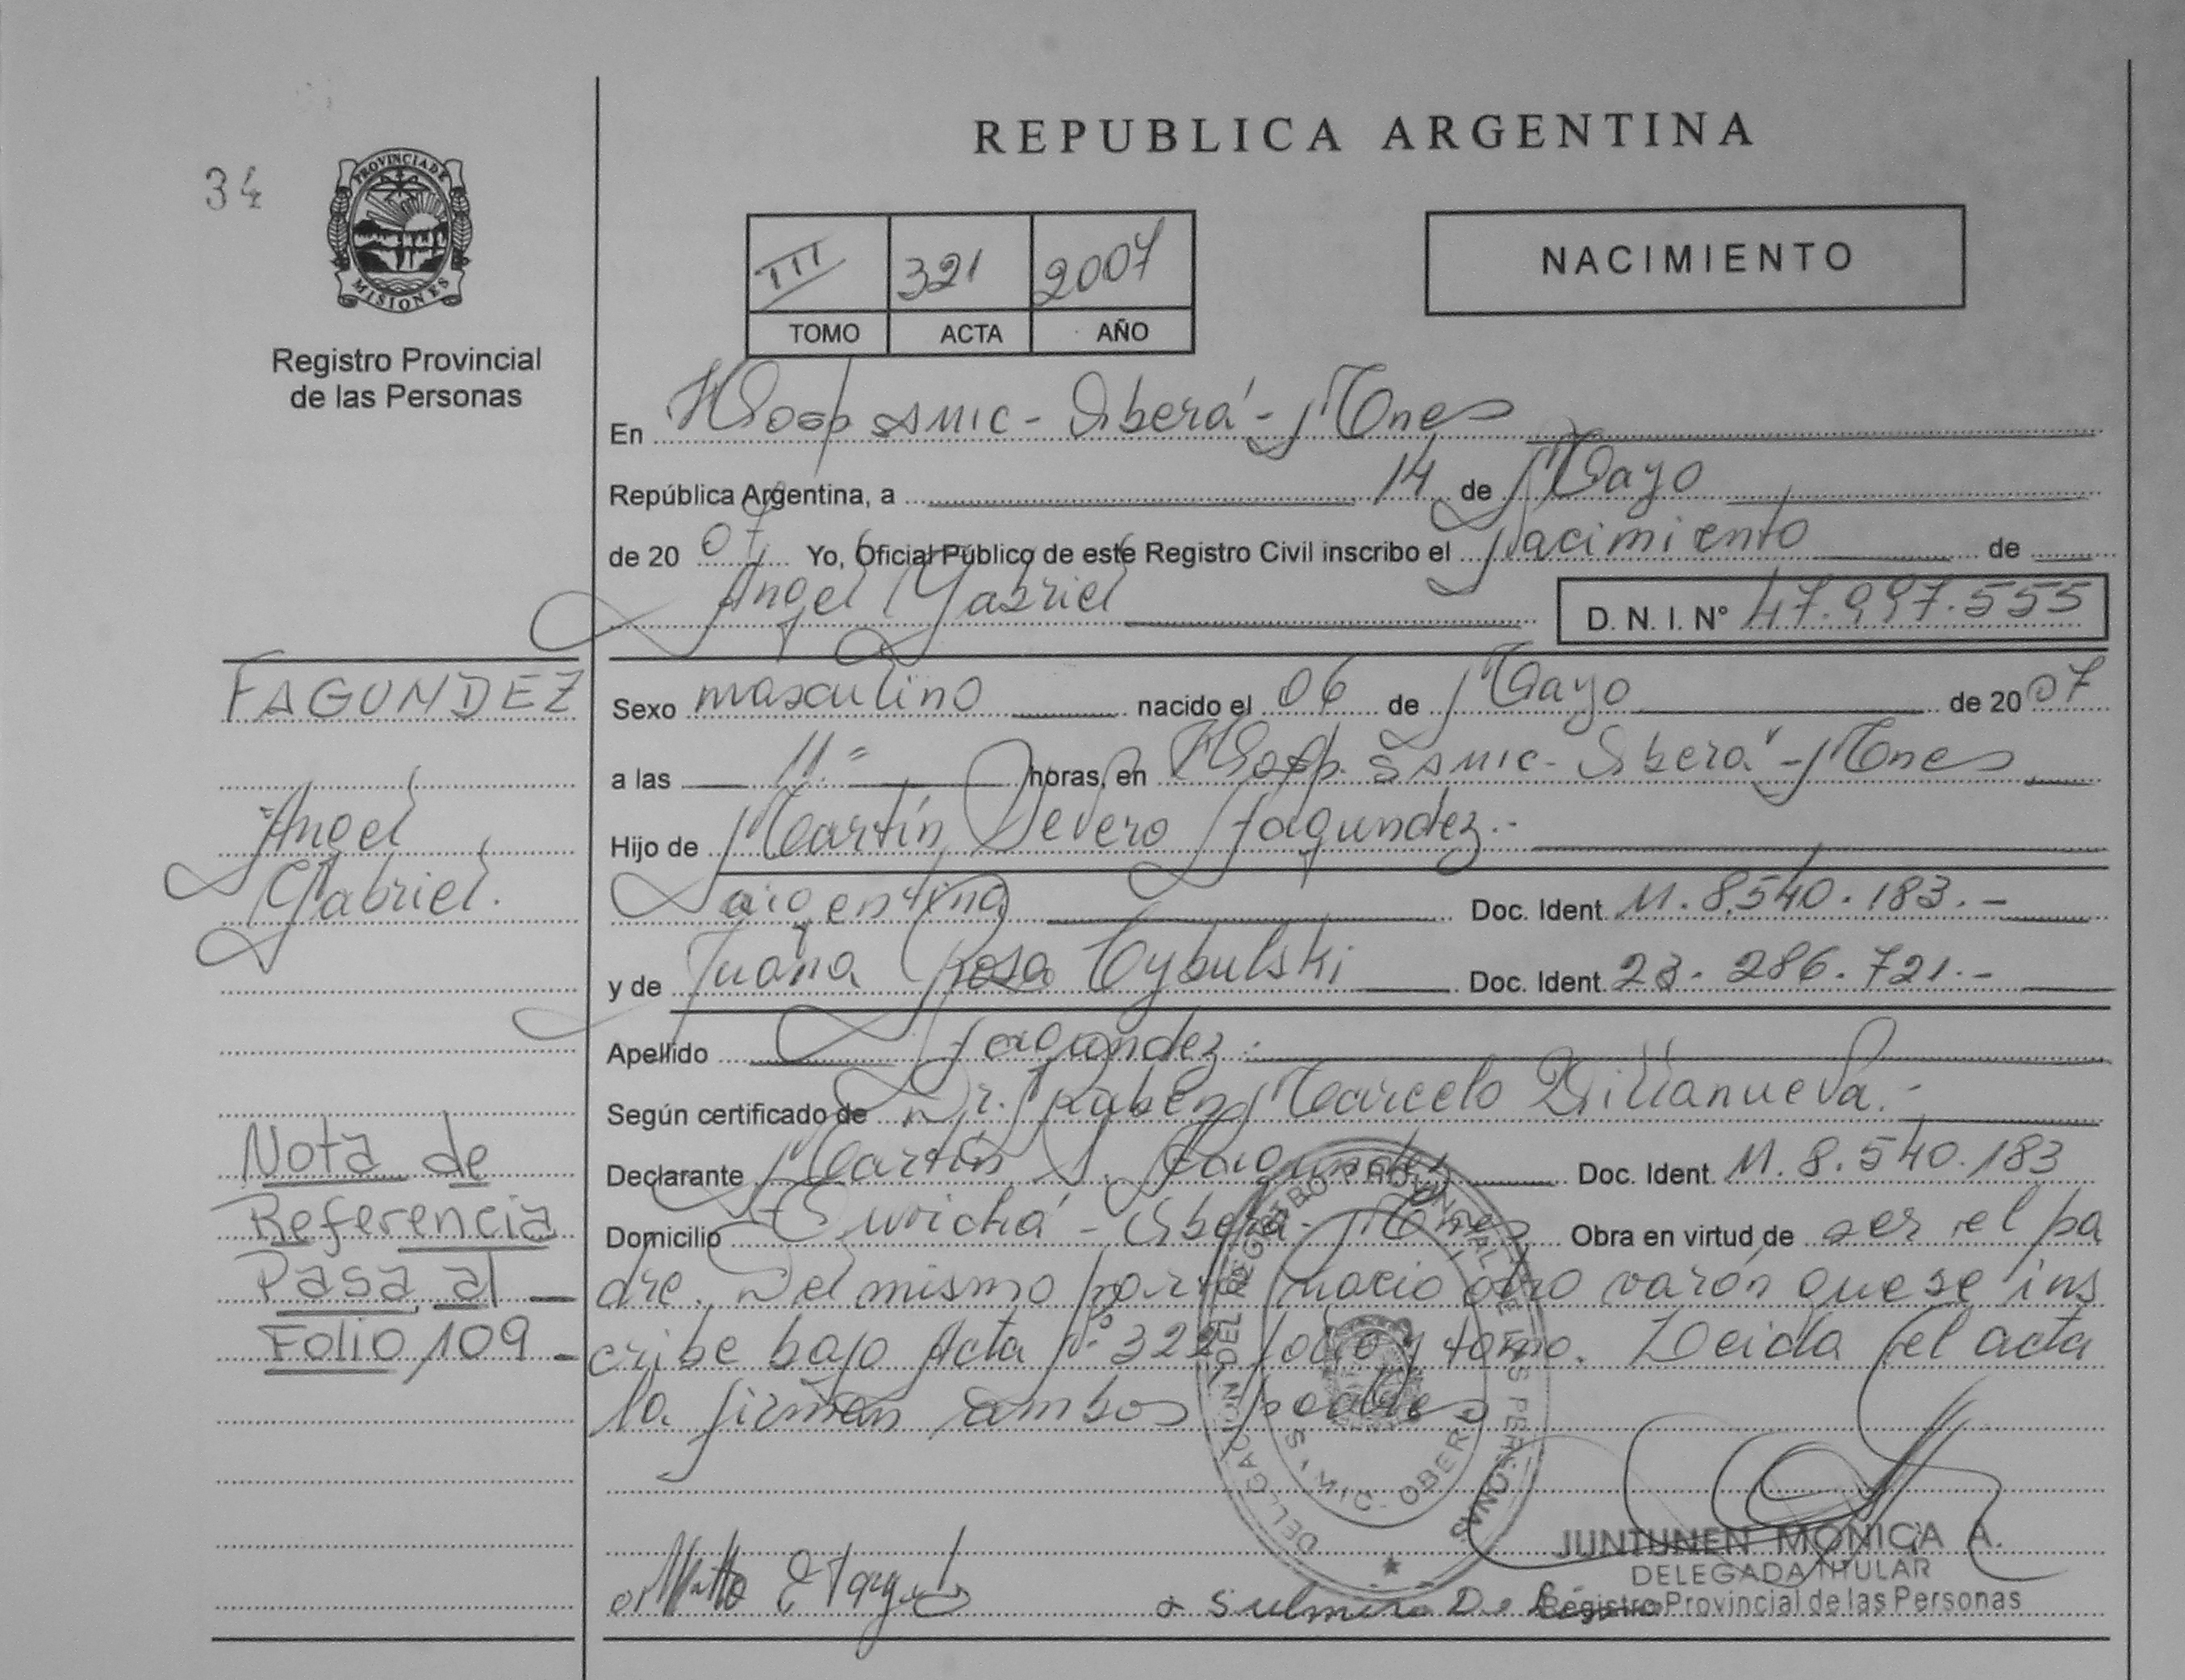 REPUBLICA ARGENTINA
34
PROVINCIA DE
MISIONES
Registro Provincial
de las Personas
III 321 2007
TOMO ACTA AÑO
NACIMIENTO
En Hosp SAMIC - Oberá - Mnes
República Argentina, a 14 de Mayo
de 2007 Yo, Oficial Público de este Registro Civil inscribo el Nacimiento de
Angel Gabriel
D. N. I. N° 47.997.555
FAGUNDEZ
Angel
Gabriel.
Sexo masculino nacido el 06 de Mayo de 2007
a las 11.= horas, en Hosp. SAMIC - Oberá - Mnes
Hijo de Martín Severo Fagundez.-
argentina Doc. Ident. M. 8.540.183.-
y de Juana Rosa Cybulski Doc. Ident. 23.286.721.-
Apellido Fagundez.-
Según certificado de Dr. Ruben Marcelo Villanueva.-
Declarante Martín S. Fagundez Doc. Ident. M. 8.540.183
Domicilio Oberá - Mnes Obra en virtud de ser el pa
dre. Del mismo parto nacio otro varón que se ins
cribe bajo Acta N° 322 folio y tomo. Leida el acta
la firman ambos padres
Nota de
Referencia
Pasa al
Folio 109
DELEGACION DEL REGISTRO PROVINCIAL DE LAS PERSONAS
SAMIC - OBERA
JUNTUNEN MONICA A.
DELEGADA TITULAR
Registro Provincial de las Personas